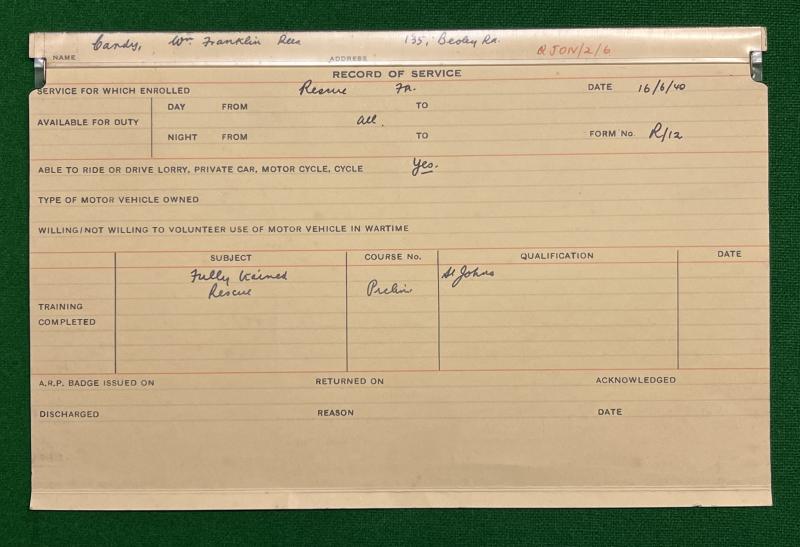 Candy, Wm Franklin Rees 135, Beoley Rd. QJON/2/6
NAME ADDRESS
RECORD OF SERVICE
SERVICE FOR WHICH ENROLLED Rescue FA. DATE 16/6/40
DAY FROM TO
AVAILABLE FOR DUTY all.
NIGHT FROM TO FORM No. R/12
ABLE TO RIDE OR DRIVE LORRY, PRIVATE CAR, MOTOR CYCLE, CYCLE Yes.
TYPE OF MOTOR VEHICLE OWNED
WILLING/NOT WILLING TO VOLUNTEER USE OF MOTOR VEHICLE IN WARTIME
SUBJECT COURSE No. QUALIFICATION DATE
Fully trained St Johns
Rescue Prelim
TRAINING
COMPLETED
A.R.P. BADGE ISSUED ON RETURNED ON ACKNOWLEDGED
DISCHARGED REASON DATE